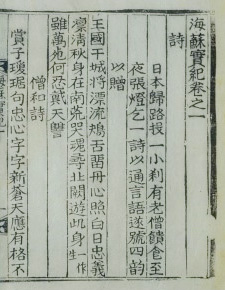 海蘇實紀卷之一
詩
日本歸路投一小刹有老僧饋食至
夜張燈乞一詩以通言語遂號四韵
以贈
王國干城将漂流鴂舌畱丹心照白日忠義
凛淸秋身在南荒哭魂尋北闕遊此身一作生
雖萬死何忍戴天讐
僧和詩
賞子瓊琚句忠心字字新蒼天應有格不